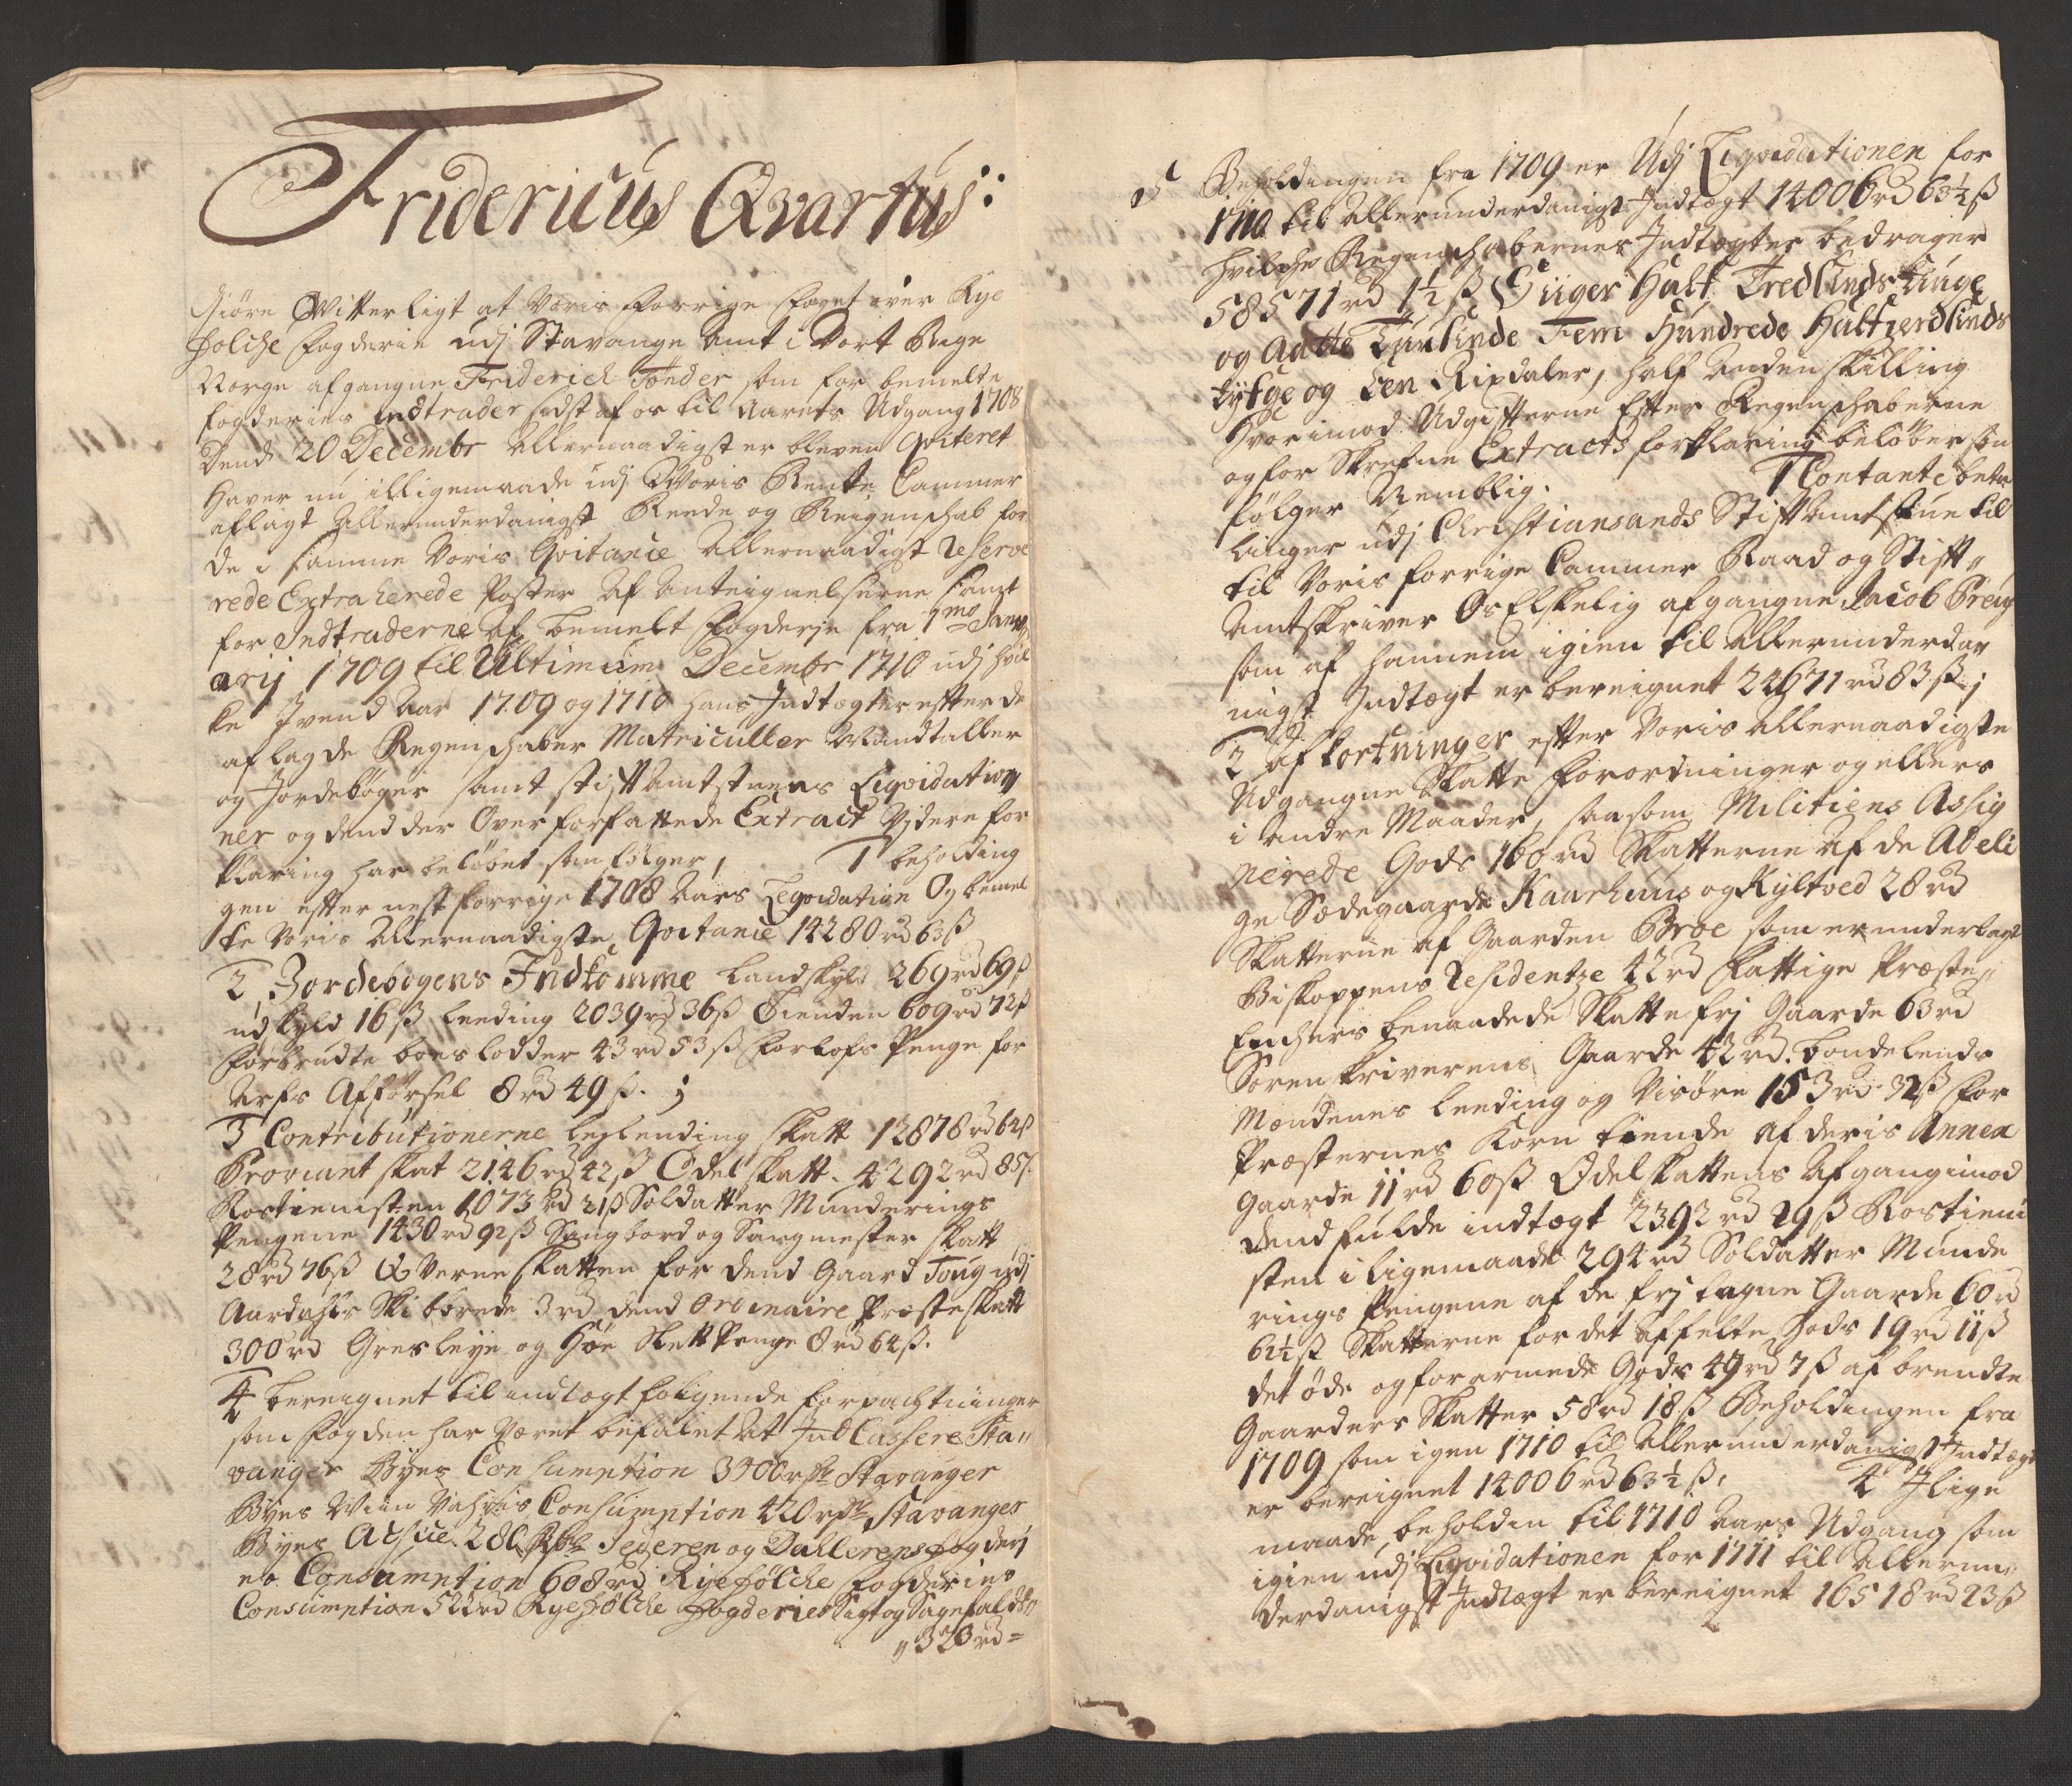 Fridericus Qvartus:
Giöre Witterligt at Voris forrige foget over Rye
folche fogderie udj Stavanger Amt i Vort Rige
Norge afgangne Friderich Tönder som for bemelte
fogderies indtrader sidst af os til Aarets Udgang 1708
Dend 20 Decembr Allernaadigst er bleven Qviteret
Haver nu illigemaade udj Voris Rente Cammer
aflagt Allerunderdanigst Reede og Reigenschab for
de i samme Voris Qvitance Allernaadigst Reserve
rede Extraherede Poster Af Anteignelserne samt
for Indtraderne Af bemelt fogderje fra 1mo Janu
arij 1709 til Ultimum Decembr 1710 udj hvil
ke Tvend Aar 1709 og 1710 hans Indtægter effter de
aflagde Regenschaber Matriculler Mandtaller
og Jordebøger samt stifftamtstuens Liqvidation
ner og dend der Over forfattede Extract Videre for
klaring har beløbet som følger, 1 beholding
gen effter nest forrige 1708 Aars Liqvidation Og bemel
te Voris Allernaadigste Qvitance 14280rd 63ß
2, Jordebogens Indkomme Landskyld 269rd 69ß
udskyld 16ß Leeding 2039rd 36ß Tienden 609rd 72ß
forbrudte boeslodder 43rd 53ß forlofs Penge for
Arfs Afførsel 8rd 49ß. ;
3 Contributionerne Leylending skatt 12878rd 64ß
Proviant skat 2146rd 42ß Odel skatt. 4292rd 85ß.
Rostienisten 1073rd 21ß Soldatter Munderings
Pengene 1430rd 92ß Saugbord og Saugmester skatt
28rd 76ß Qværneskatten for dend Gaard Tong udj
Aardahls Skibbrede 3rd dend Ordinaire Præsteskatt
300rd Gresleye og Høe Slett Penge 8rd 64ß.
4 bereignet til indtægt følgende forpachtninger
som fogden har været befalet At IndCassere Sta„
vanger Byes Consumption 3900rdr Stavanger
Byes Viin Consumption 420rdr Stavanger
Byes Acsice 280 Rdr Jederen og Dallernes fogderj
es Consumption 608rd Ryefølche Fogderies
Consumption 522rd Ryefølche Fogderies Sigt og Sagefald
„ 323rd =
5 Beholdingen fra 1709 er Udj Liqvidationen for
1710 til Allerunderdanigst Indtægt 14006rd 63½ß
hvilche Regenschabernes Indtægter bedrager
58571rd 1½ß Siiger Halt Tredsinds Tiuge
og Aatte Tusinde Fem Hundrede Halfjerdsinds
tyfge og Een Rixdaler, half Anden skilling
Hvorimod Udgiffterne Effter Regenschaberne
og for Skrefne Extracts forklaring beløber som
følger Nemblig. 1 Contante beta
linger udj Christiansands Stifftamtstue til
til Voris forrige Cammer Raad og Stifft„
amtskriver Os Elskelig afgangne Jacob
som af hannem igien til Allerunderda
nigst Indtægt er bereignet 24671rd 83ß. ;
2 Afkortninger effter Voris Allernaadigste
Udgangne Skatte forordninger og ellers
i Andre Maader, saasom Militiens Assig
nerede Gods 160rd Skatterne Af de Adeli
ge Sædegaarde Kaarhuus og Kyltved 28rd
Skatterne af Gaarden Broe som er underlagt
Biskoppens Residentze 42rd skattige Præste„
Enchers benaadede Skatte frj Gaarde 63rd
Sorenskriverens Gaarde 42rd. bondelends
Mændenes Leeding og Visøre 153rd. 32ß for
Præsternes Korn tiende af deris Annex
Gaarde 11rd 60ß Odelskattens Afgang imod
dend fulde indtægt 2392rd 29ß Rostieni
sten i ligemaade 294rd Soldatter Munde
rings Pengene af de frj tagne Gaarde 60rd
62½ß Skatterne for det affelte Gods 19rd 11ß
det øde og forarmede Gods 49rd 7ß afbrendte
Gaarders Skatter 58rd 18ß Beholdingen fra
1709 som igen 1710 til Allerunderdanigst Indtægt
er bereignet 14006rd 63½ß, 4 Ilige
maade, beholden til 1710 Aars Udgang som
igien udj Liqvidationen for 1711 til Allerun„
derdanigst Indtægt er bereignet 16518rd 23ß